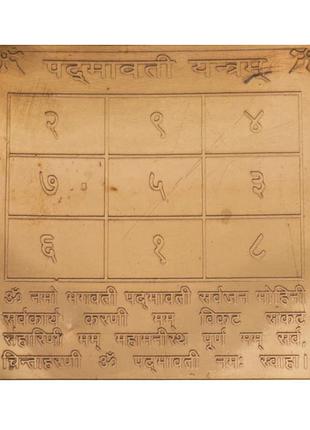 पद्मावती यन्त्रम्
२ ९ ४
७ ५ ३
६ १ ८
ॐ नमो भगवती पद्मावती सर्वजन मोहिनी
सर्वकार्य करणी मम् विकट संकट
संहारिणी मम् महामनोरथ पूर्ण मम् सर्व
चिन्ताहरणी ॐ पद्मावती नमः स्वाहा।